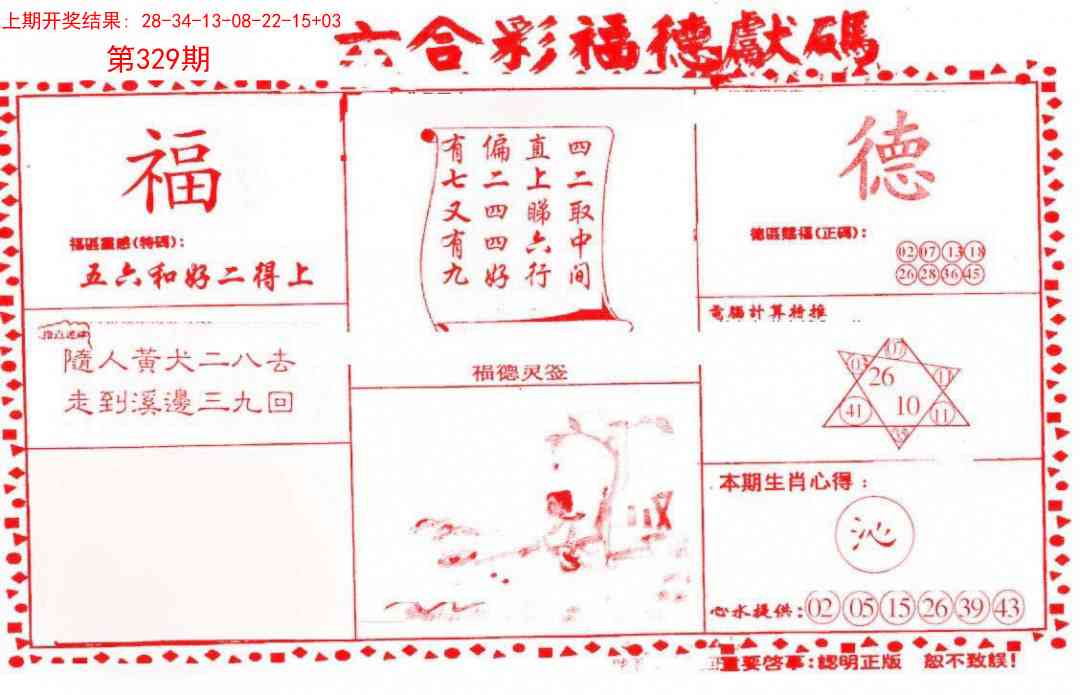 上期开奖结果: 28-34-13-08-22-15+03
第329期
六合彩福德獻碼
福
福區靈感(特碼):
五六和好二得上
四二取中间
直上睇六行
偏二四四好
有七又有九
德
德區賜福(正碼):
02 07 13 18
26 28 36 45
隨人黄犬二八去
走到溪邊三九回
福德灵签
電腦計算特推
03
26
11
41
10
11
本期生肖心得:
沁
心水提供: 02 05 15 26 39 43
重要啓事:認明正版 恕不致誤!